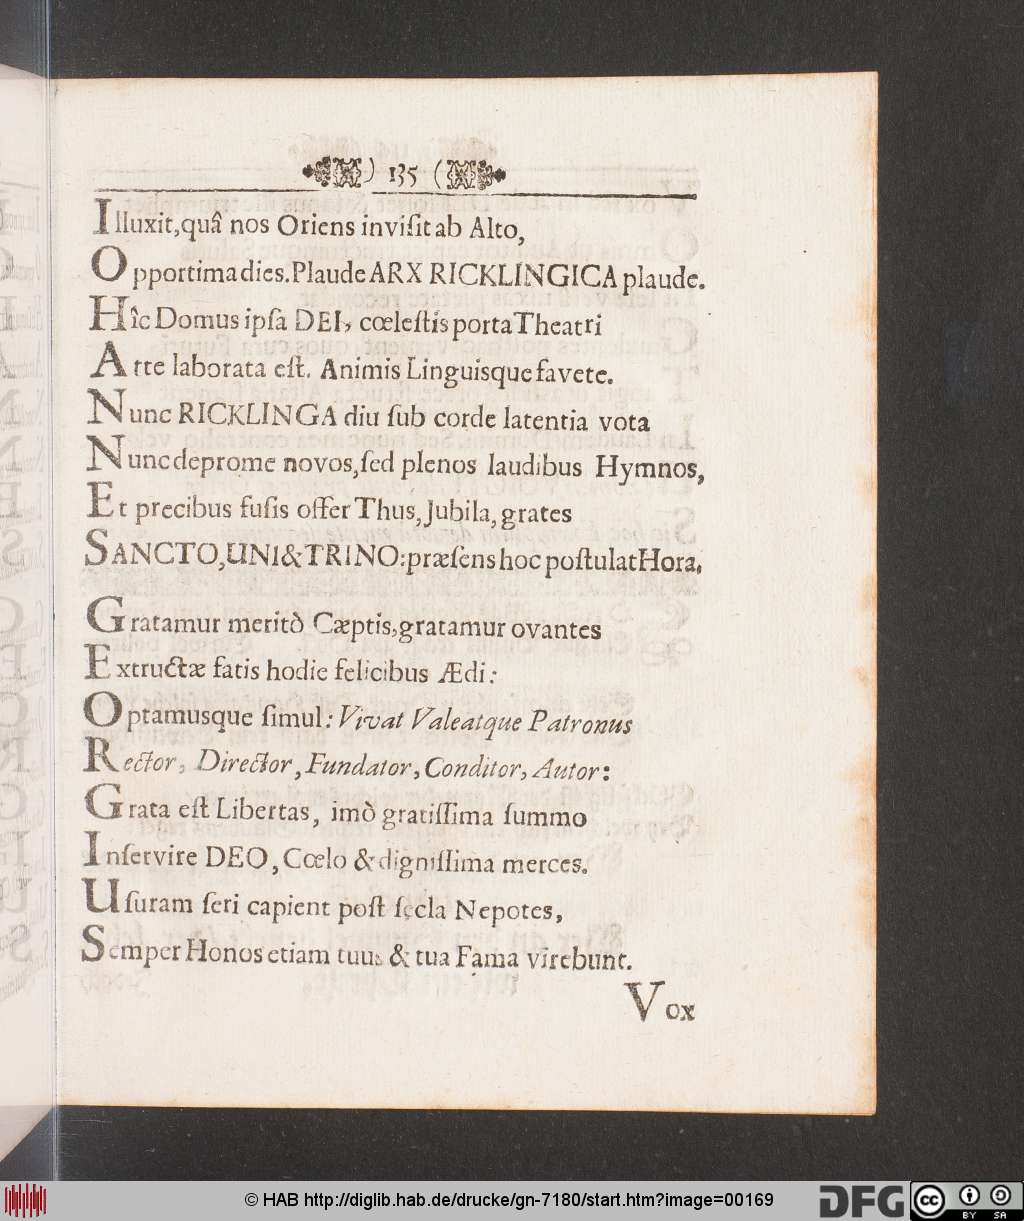 ) 135 (
Illuxit, quâ nos Oriens inviſit ab Alto,
Opportima dies. Plaude ARX RICKLINGICA plaude.
Hîc Domus ipſa DEI, cœleſtis porta Theatri
Arte laborata eſt. Animis Linguisque favete.
Nunc RICKLINGA diu ſub corde latentia vota
Nunc deprome novos, ſed plenos laudibus Hymnos,
Et precibus fuſis offer Thus, Jubila, grates
SANCTO, UNI & TRINO: præſens hoc poſtulat Hora.
Gratamur meritò Cæptis, gratamur ovantes
Extructæ fatis hodie felicibus Ædi:
Optamusque ſimul: Vivat Valeatque Patronus
Rector, Director, Fundator, Conditor, Autor:
Grata eſt Libertas, imò gratiſſima ſummo
Inſervire DEO, Cœlo & digniſſima merces.
Uſuram ſeri capient poſt ſecla Nepotes,
Semper Honos etiam tuus & tua Fama virebunt.
Vox
© HAB http://diglib.hab.de/drucke/gn-7180/start.htm?image=00169
DFG
cc BY SA